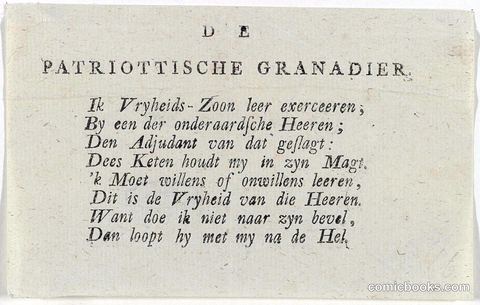 D E
PATRIOTTISCHE GRANADIER.
Ik Vryheids-Zoon leer exerceeren;
By een der onderaardſche Heeren;
Den Adjudant van dat geſlagt:
Dees Keten houdt my in zyn Magt.
'k Moet willens of onwillens leeren,
Dit is de Vryheid van die Heeren.
Want doe ik niet naar zyn bevel,
Dan loopt hy met my na de Hel.
comicbooks.com